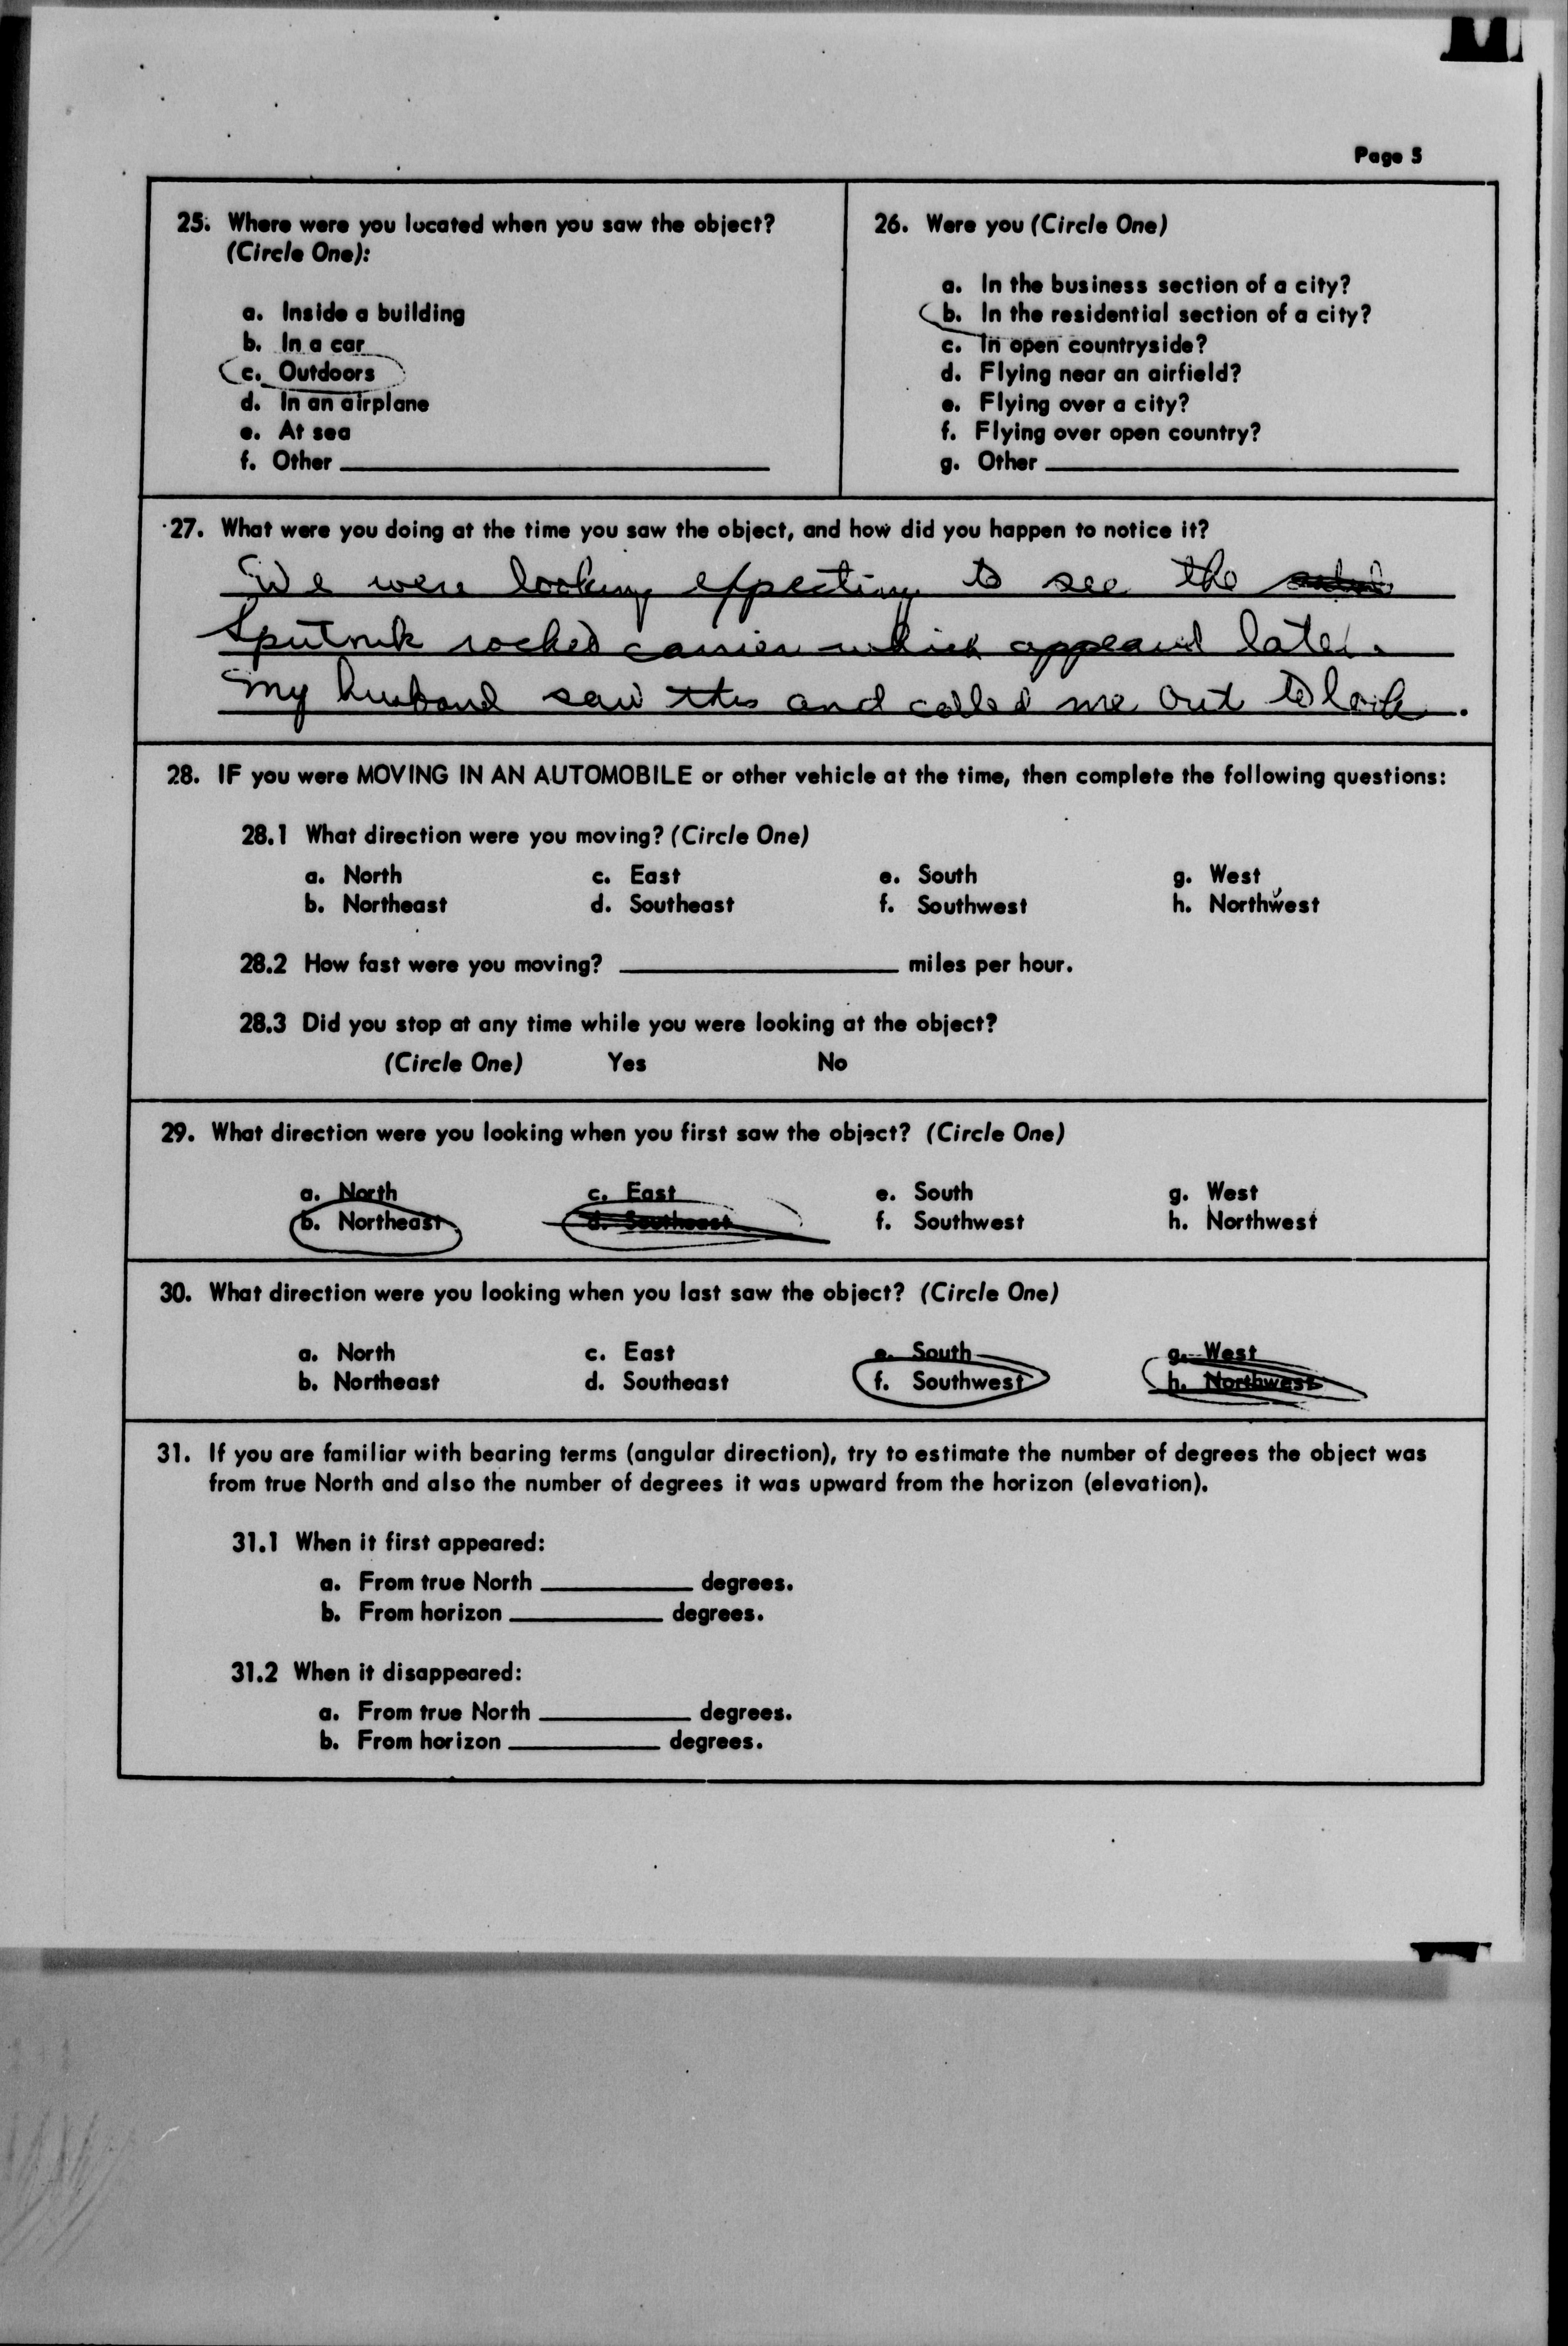 Page 5
25. Where were you located when you saw the object?
(Circle One):
a. Inside a building
b. In a car
c. Outdoors
d. In an airplane
e. At sea
f. Other
26. Were you (Circle One)
a. In the business section of a city?
b. In the residential section of a city?
c. In open countryside?
d. Flying near an airfield?
e. Flying over a city?
f. Flying over open country?
g. Other
27. What were you doing at the time you saw the object, and how did you happen to notice it?
We were looking expecting to see the
Sputnik rocket carrier which appeared later.
My husband saw this and called me out to look.
28. IF you were MOVING IN AN AUTOMOBILE or other vehicle at the time, then complete the following questions:
28.1 What direction were you moving? (Circle One)
a. North c. East e. South g. West
b. Northeast d. Southeast f. Southwest h. Northwest
28.2 How fast were you moving? miles per hour.
28.3 Did you stop at any time while you were looking at the object?
(Circle One) Yes No
29. What direction were you looking when you first saw the object? (Circle One)
a. North c. East e. South g. West
b. Northeast d. Southeast f. Southwest h. Northwest
30. What direction were you looking when you last saw the object? (Circle One)
a. North c. East e. South g. West
b. Northeast d. Southeast f. Southwest h. Northwest
31. If you are familiar with bearing terms (angular direction), try to estimate the number of degrees the object was
from true North and also the number of degrees it was upward from the horizon (elevation).
31.1 When it first appeared:
a. From true North degrees.
b. From horizon degrees.
31.2 When it disappeared:
a. From true North degrees.
b. From horizon degrees.